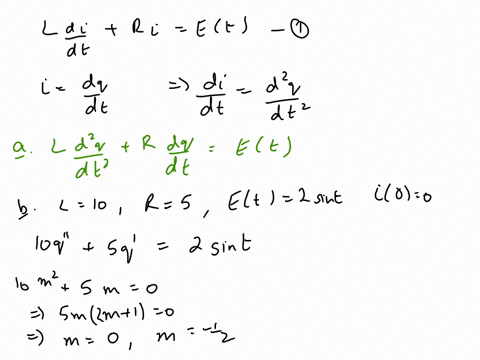 L di/dt + Ri = E(t) — ①
i = dq/dt ⇒ di/dt = d²q/dt²
a. L d²q/dt² + R dq/dt = E(t)
b. L=10, R=5, E(t)=2 sint i(0)=0
10q'' + 5q' = 2 sint
10 m² + 5 m = 0
⇒ 5m(2m+1)=0
⇒ m = 0, m = -1/2